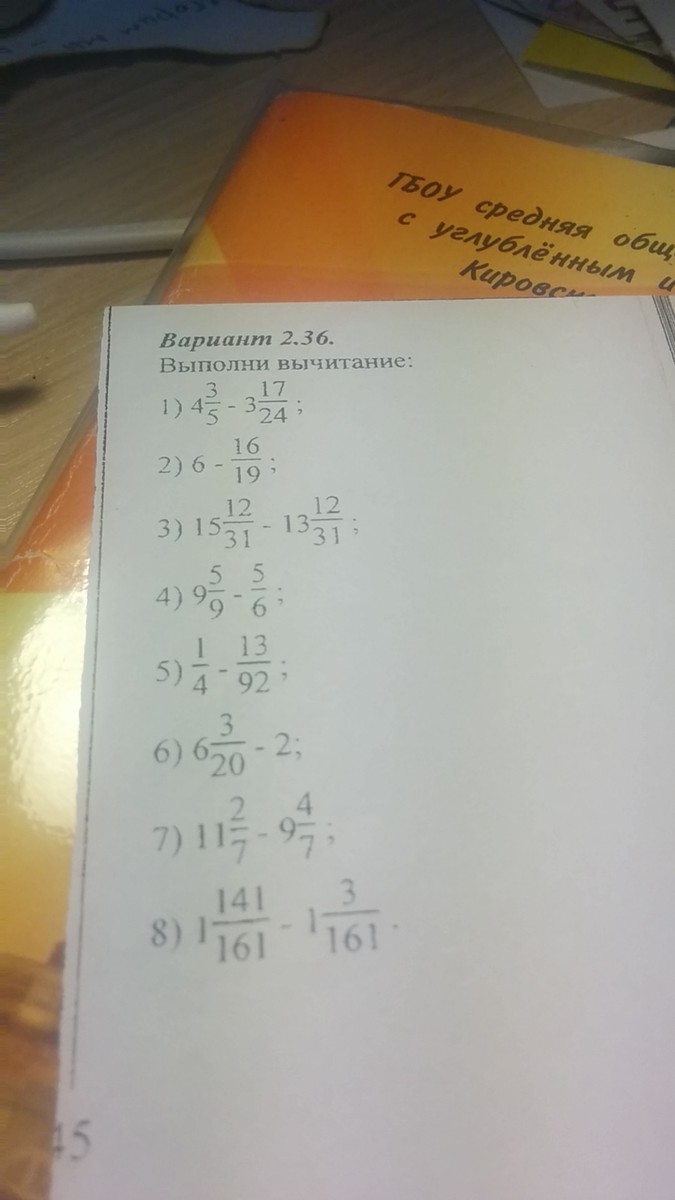 ГБОУ средняя
с углублённым
Вариант 2.36.
Выполни вычитание:
1) 4 3/5 - 3 17/24 ;
2) 6 - 16/19 ;
3) 15 12/31 - 13 12/31 ;
4) 9 5/9 - 5/6 ;
5) 1/4 - 13/92 ;
6) 6 3/20 - 2;
7) 11 2/7 - 9 4/7 ;
8) 1 141/161 - 1 3/161 .
45